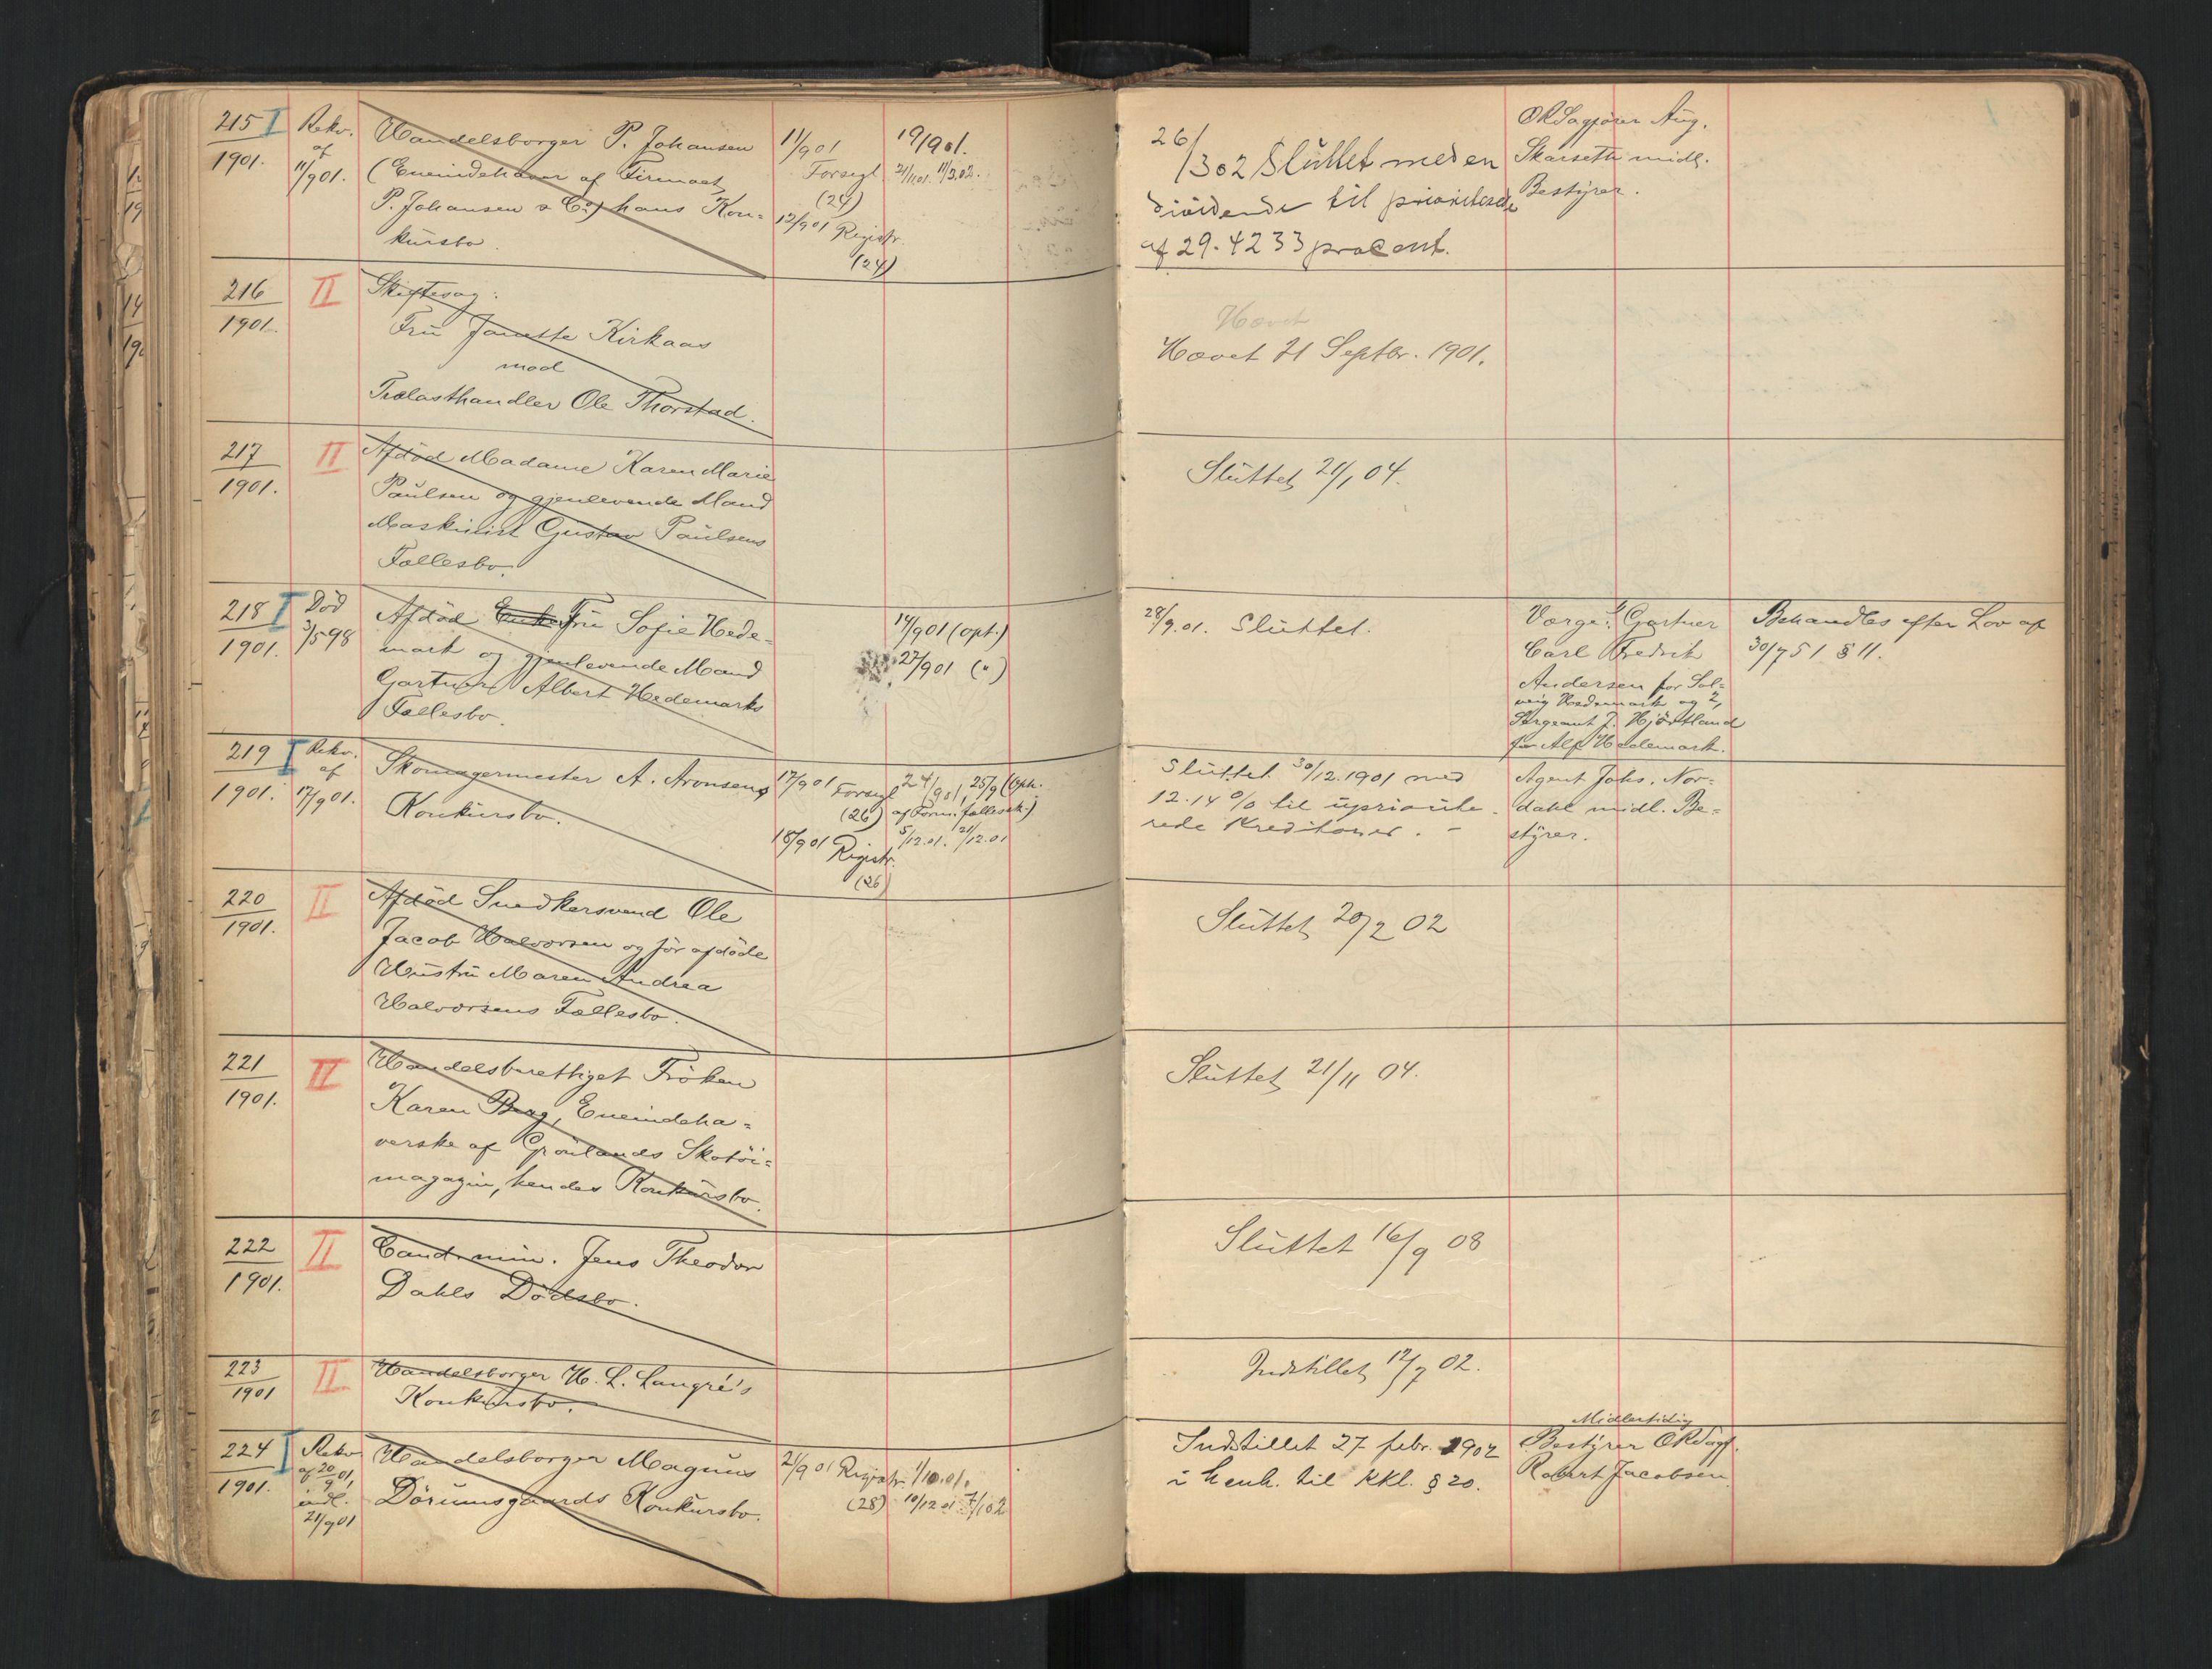 215 I Rekv. Handelsborger P. Johansen 11/901 19/901.
1901. af (Eneindehaver af Firmaet Forsegl. 21/11.01. 11/3.02.
11/901. P. Johansen & Co) hans Kon= (24)
kursbo. 12/901 Registr.
(24)
26/302 Sluttet med en
dividende til prioriterede
af 29.4233 procent.
ORSagfører Aug.
Skarseth midl.
Bestyrer.
216 II Skiftesag:
1901. Fru Janette Kirkaas
mod
Trælasthandler Ole Thorstad.
Hævet
Hævet 21 Septbr. 1901.
217 II Afdød Madame Karen Marie
1901. Paulsen og gjenlevende Mand
Maskinist Gustav Paulsens
Fællesbo.
Sluttet 21/1 04.
218 I Død Afdød Enke Fru Sofie Hede=
1901. 3/5 98 mark og gjenlevende Mand
Gartner Albert Hedemarks
Fællesbo.
19/901 (opt.)
27/901 (")
28/9.01. Sluttet.
Værge: 1, Gartner
Carl Fredrik
Andersen for Sol=
veig Hedemark og 2,
Sergeant J. Hjørtland
for Alf Hedemark.
Behandles efter Lov af
30/7 51 § 11.
219 I Rekv. Skomagermester A. Aronsens
1901. af Konkursbo.
17/901.
17/901 Forsegl.
(26)
18/901 Registr.
(26)
24/901, 25/9 (Oph.
af Form. fællessk.)
5/12.01. 21/12.01
Sluttet 30/12.1901 med
12.14 % til upriorite-
rede Kreditorer. -
Agent Johs. Nor=
dahl midl. Be=
styrer.
220 II Afdød Snedkersvend Ole
1901. Jacob Halvorsen og før afdøde
Hustru Maren Andrea
Halvorsens Fællesbo.
Sluttet 20/2 02
221 II Handelsberettiget Frøken
1901. Karen Berg, Eneindeha=
verske af Grønlands Skotøi=
magazin, hendes Konkursbo.
Sluttet 21/11 04.
222 II Cand. min. Jens Theodor
1901. Dahls Dødsbo.
Sluttet 16/9 08
223 II Handelsborger H. L. Langré's
1901 Konkursbo.
Indstillet 12/7 02.
224 I Rekv. Handelsborger Magnus
1901. af 20/9 01, Dørumsgaards Konkursbo.
indl.
21/901
21/901 Registr.
(28)
1/10.01.
10/12 01 7/102
Indstillet 27 febr. 1902
i henh. til KKl. § 20.
Midlertidig
Bestyrer ORSagf.
Robert Jacobsen